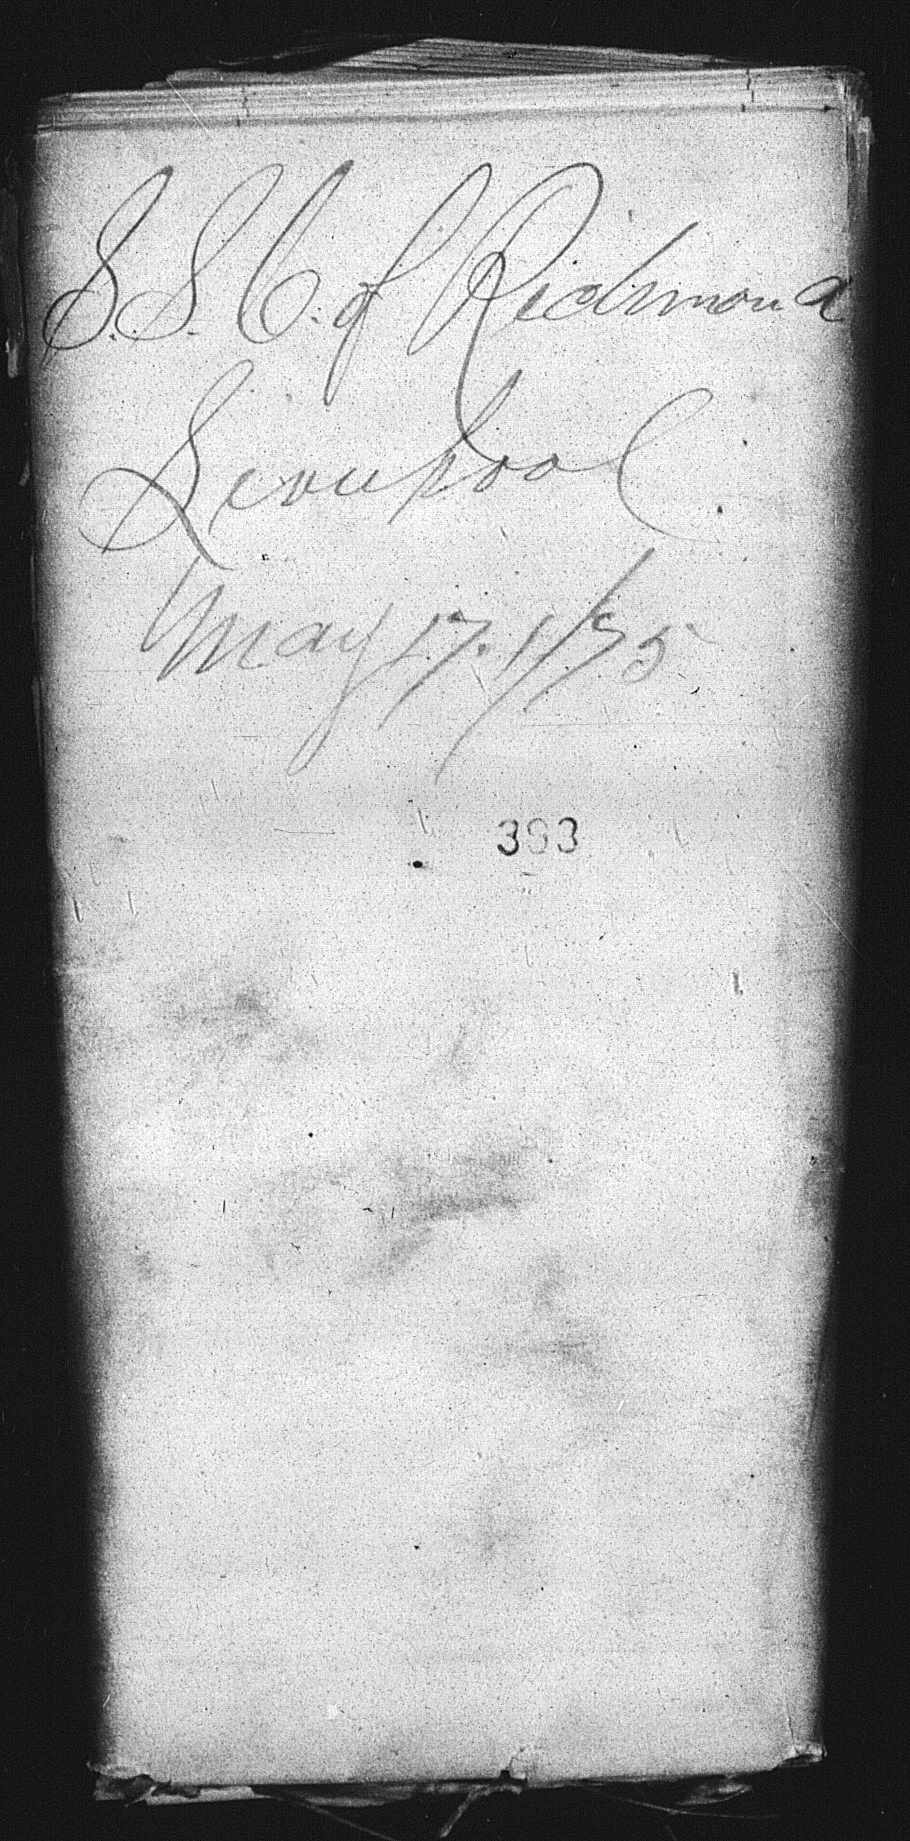 S.S. C. of Richmond
Liverpool.
May 17. 1/75
393